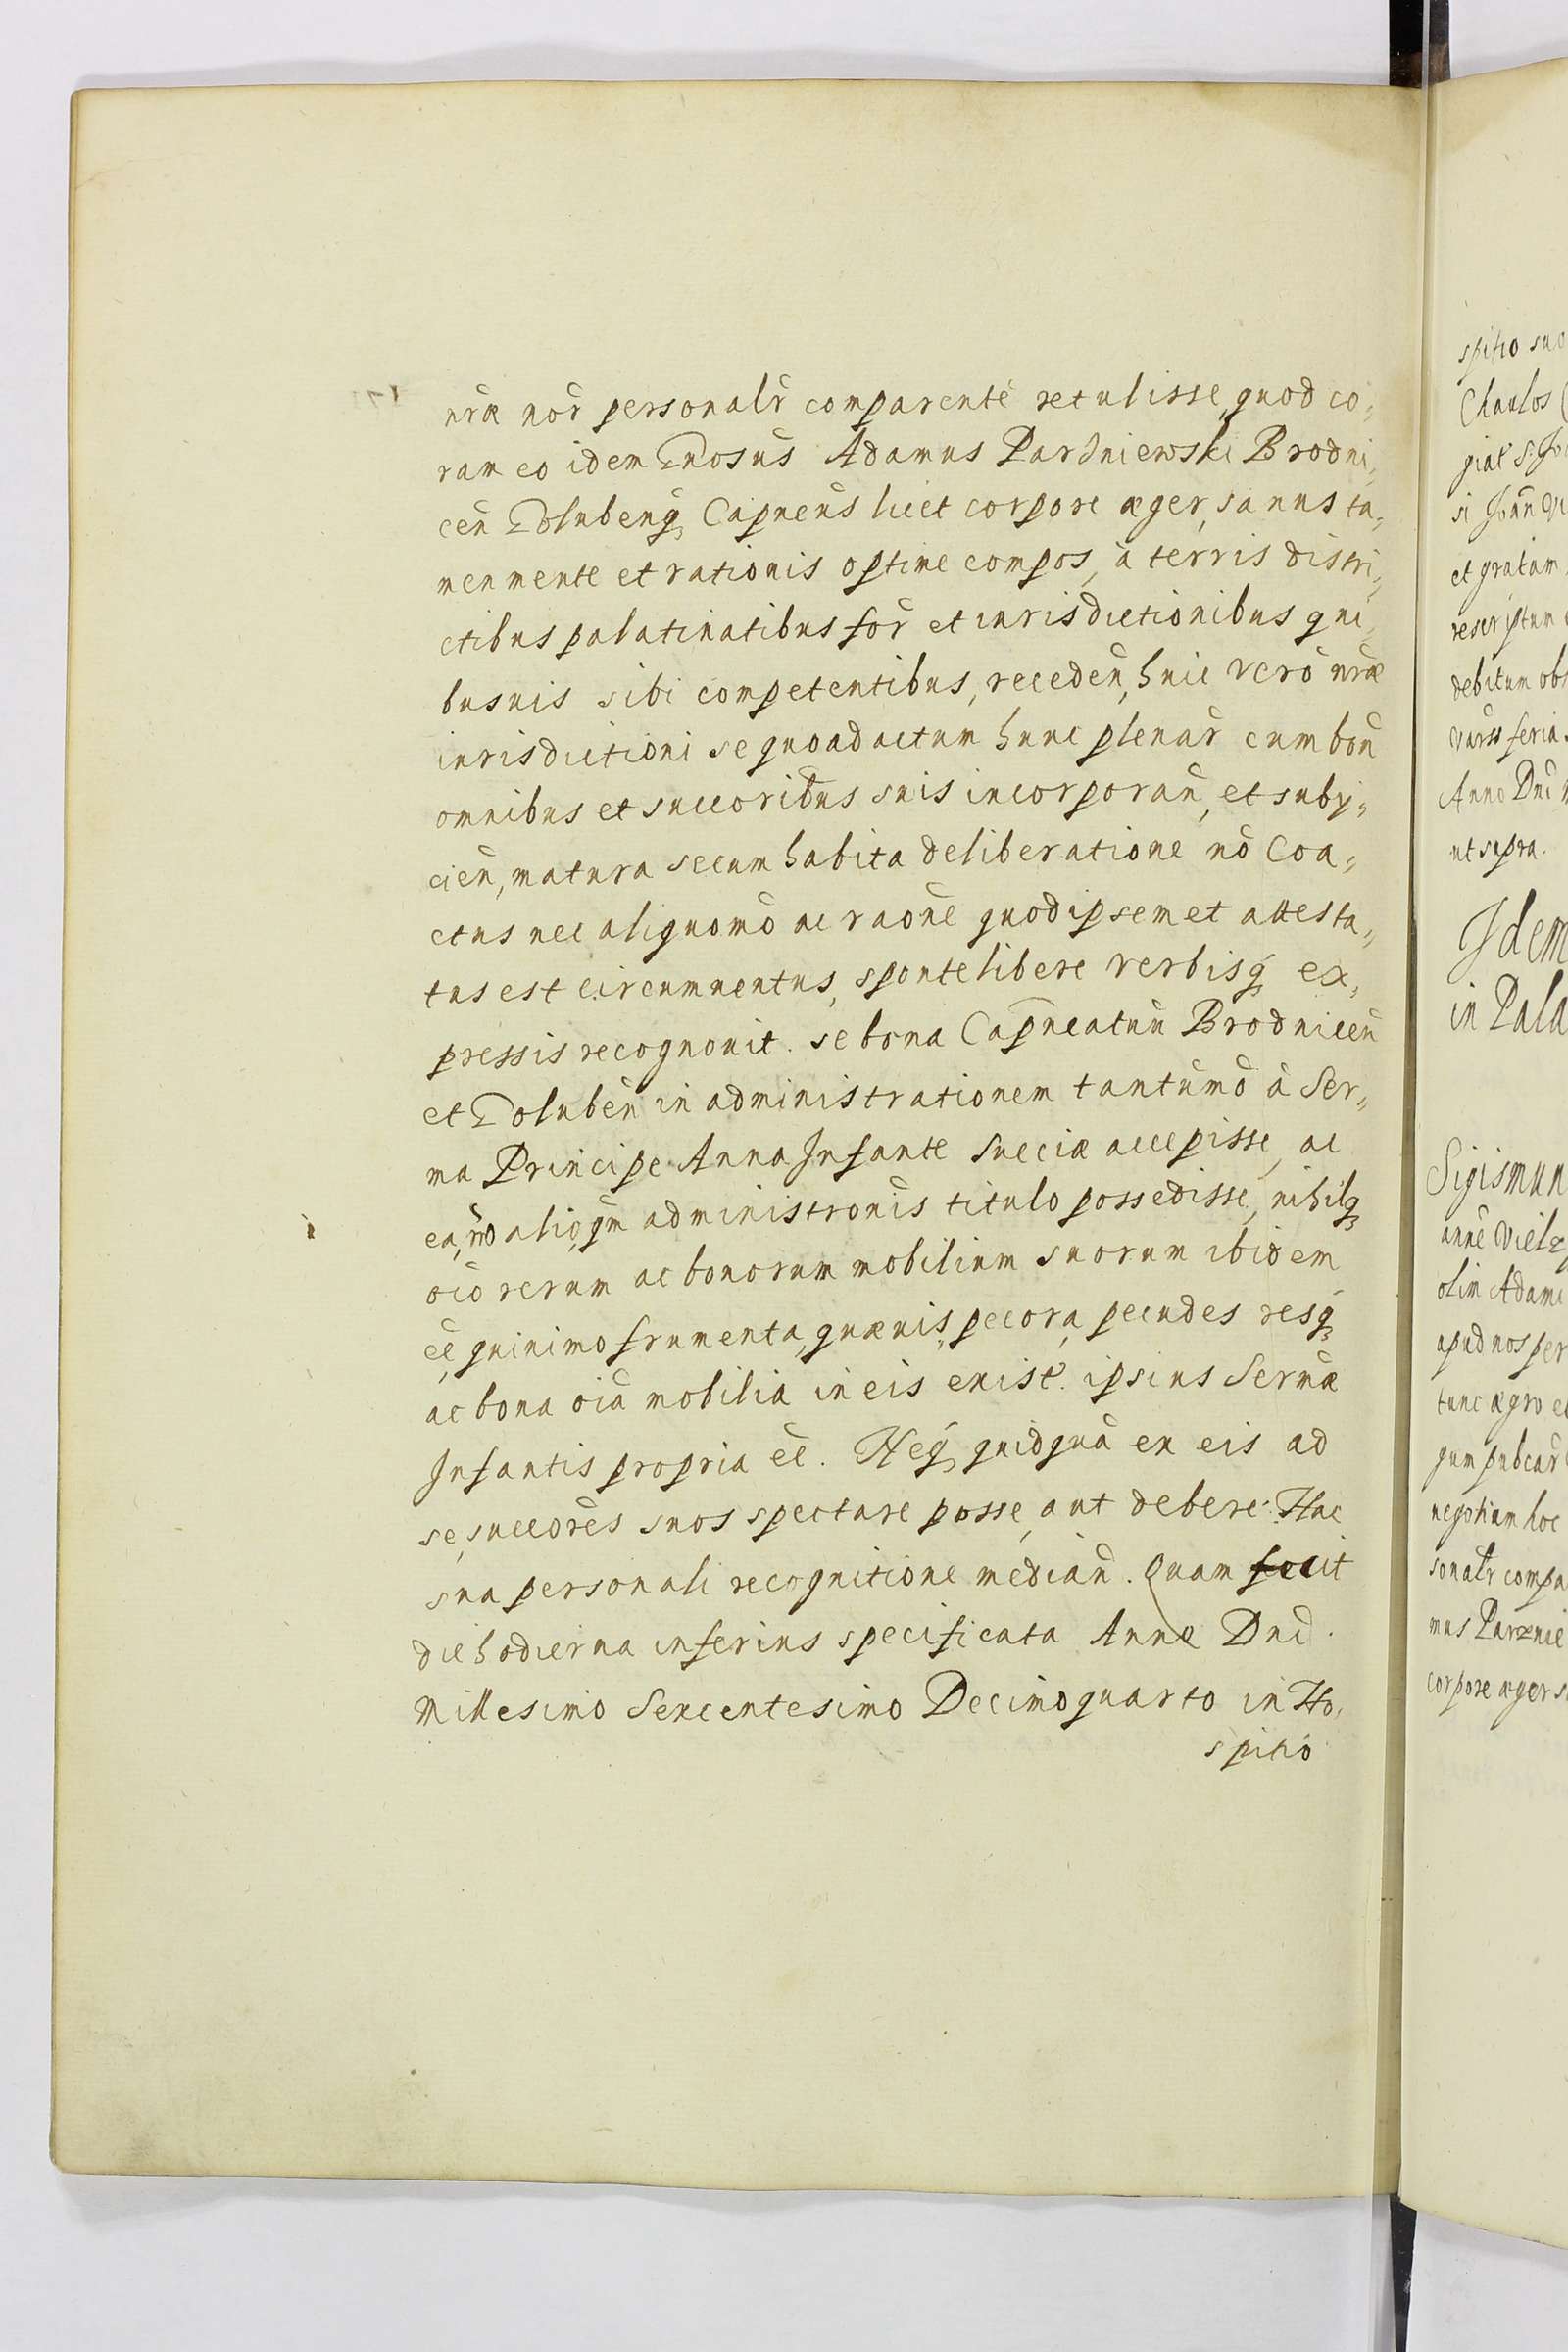 nrae nor personalr comparente retulisse, quod co,,
ram eo idem Gnosus Adamus Pardniewski Brodni,,
cen Golubenq Capneus licet corpore aeger, sanus ta,,
men mente et rationis optime compos, à terris distri,,
ctibus palatinatibus for et iurisdictionibus qui,,
busuis sibi competentibus, receden, huic vero nrae
iurisdictioni se quoad actum hunc plenar cum bon
omnibus et succoribus suis incorporan, et subij,,
cien, matura secum habita deliberatione no Coa,,
ctus nec aliquomo ac raone quod ipsemet attesta,,
tus est circumuentus, sponte libere verbisq ex,,
pressis recognouit. se bona Capneatuu Brodnicen
et Goluben in administrationem tantumo à Ser,,
ma Principe Anna Infante Sueciae accepisse, ac
ea, no alio, qm administronis titulo possedisse, nihilq
oio rerum ac bonorum mobilium suorum ibidem
ee, quinimo frumenta, quaeuis, pecora, pecudes resq
ac bona oia mobilia in eis exist. ipsius Sermae
Infantis propria ee. Neq quidqua ex eis ad
se, succores suos spectare posse, aut debere. Hac
sua personali recognitione median. Quam fecit
die hodierna inferius specificata Anno Dni.
Millesimo Sexcentesimo Decimoquarto in Ho,,
spitio
spitio suo
Claulos
giat S. Jo
si Joan
et gratam
rescriptum
debitum obs
Varss feria
Anno Dni
ut supra.
Idem
in Pala
Sigismun
anne Vielz
olim Adami
apud nos per
tunc aegro
gum pubcar
negotium hoc
sonalr compa
mus Parznie
corpore aeger s